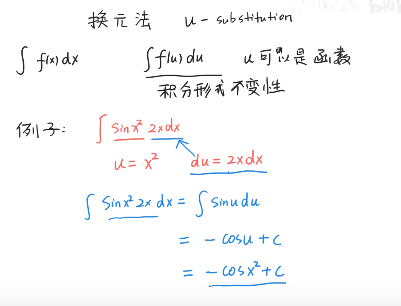 换元法 u-substitution
∫ f(x) dx ∫ f(u) du u 可以是函数
积分形式不变性
例子: ∫ sin x² 2x dx
u = x² du = 2x dx
∫ sin x² 2x dx = ∫ sin u du
= - cos u + c
= - cos x² + c